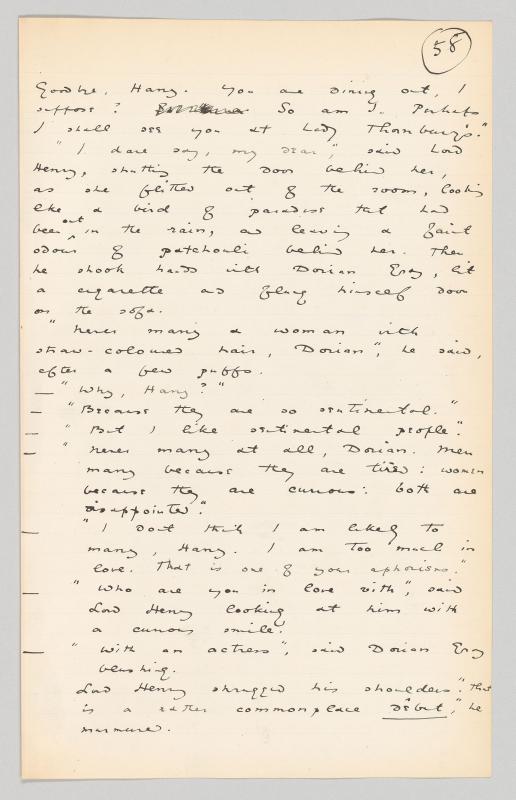 58
Goodbye, Harry. You are dining out, I
suppose? So am I. Perhaps
I shall see you at Lady Thornbury's."
"I dare say, my dear", said Lord
Henry, shutting the door behind her,
as she flitted out of the room, looking
like a bird of paradise that had
been out in the rain, and leaving a faint
odour of patchouli behind her. Then
he shook hands with Dorian Gray, lit
a cigarette and flung himself down
on the sofa.
"Never marry a woman with
straw-coloured hair, Dorian", he said,
after a few puffs.
— "Why, Harry?"
— "Because they are so sentimental."
— "But I like sentimental people".
— "Never marry at all, Dorian. Men
marry because they are tired: women
because they are curious: both are
disappointed".
— "I don't think I am likely to
marry, Harry. I am too much in
love. That is one of your aphorisms."
— "Who are you in love with", said
Lord Henry looking at him with
a curious smile.
— "With an actress", said Dorian Gray
blushing.
Lord Henry shrugged his shoulders". That
is a rather commonplace début", he
murmured.